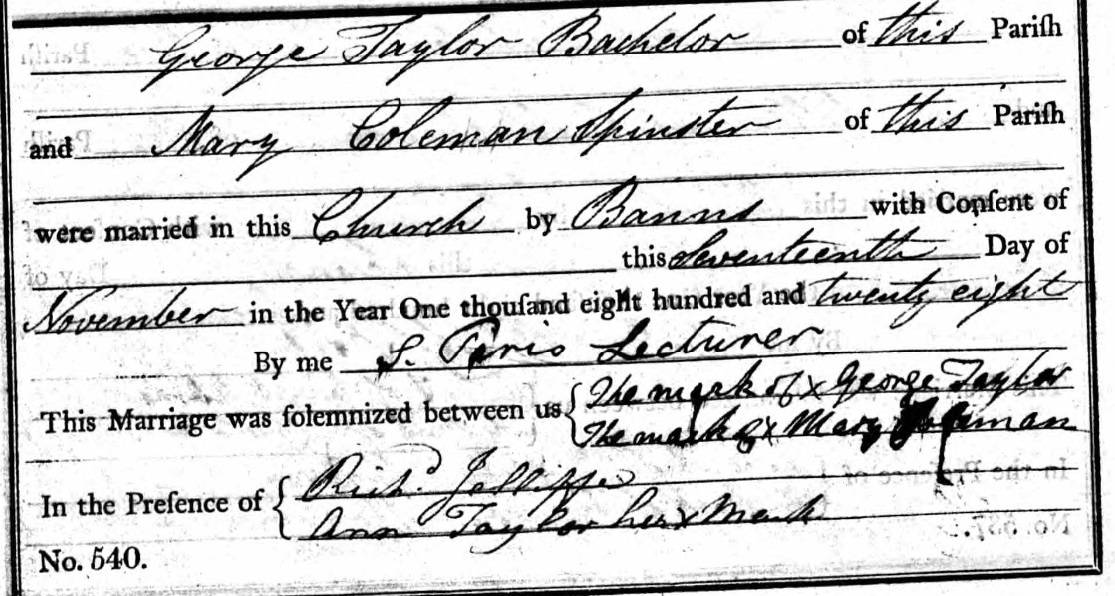 George Taylor Bachelor of this Pariſh
and Mary Coleman Spinster of this Pariſh
were married in this Church by Banns with Conſent of
this Seventeenth Day of
November in the Year One thouſand eight hundred and twenty eight
By me S. Paris Lecturer
This Marriage was ſolemnized between us { The mark of x George Taylor
The mark of x Mary Coleman
In the Preſence of { Richd. Jolliffe
Ann Taylor her x Mark
No. 540.